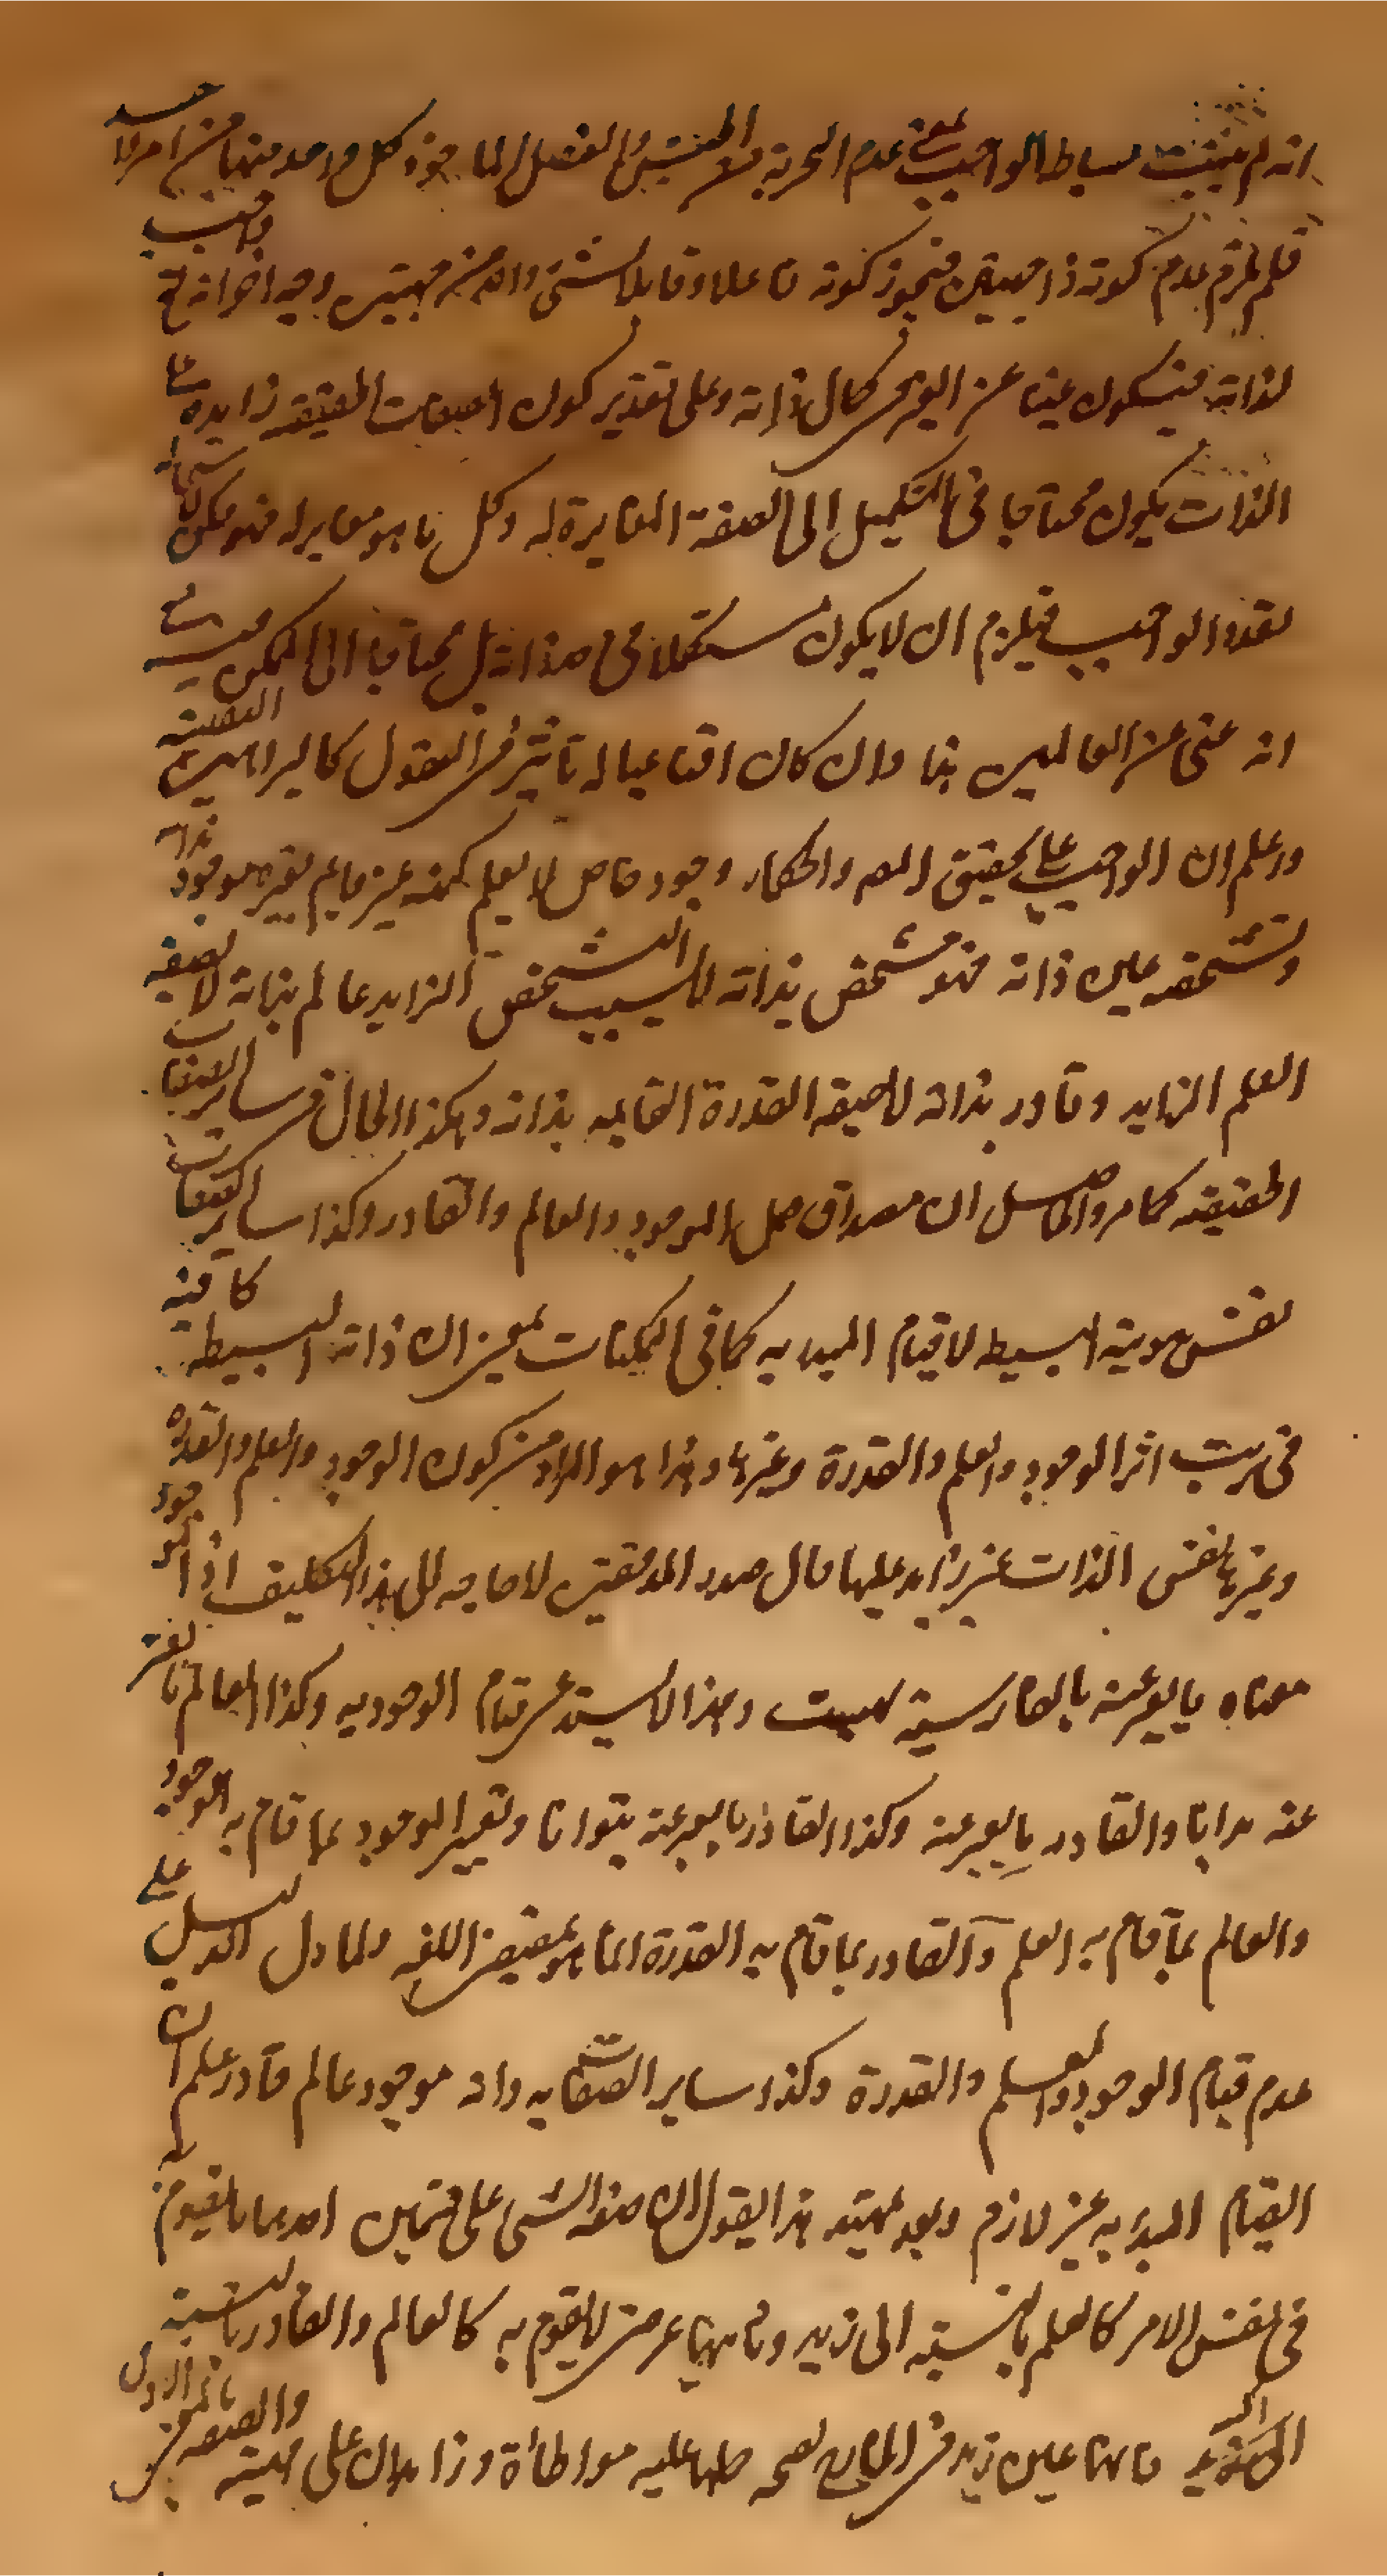 انه لم يثبت بساطه الواجب بمعنى عدم التجزية من الجنس والفصل الماخوذ كل واحد منهما من امر لا حينئذ
فلم يلزم عدم كونه ذا جهتين فيجوز كونه فاعلا وقابلا لشئ واحد من جهتين وجه اخر انه تع واجب
لذاته فيكون غنيا عن الغير فى كمال ذاته وعلى تقدير كون الصفات الحقيقه زايده على
الذات يكون محتاجا فى التكميل الى الصفة المغايرة له وكل ما هو مغاير له فهو ممكن لاستحاله
تعدد الواجب فيلزم ان لا يكون مستكملا فى حد ذاته بل محتاجا الى الممكن مع
انه غنى عن العالمين هذا وان كان اقناعيا له تاثير فى العقول كالبراهين القطعيته
واعلم ان الواجب على تحقيق المص والحكماء وجود خاص لا يعلم كنهه غير قايم بغيره موجود بذاته
وتشخصه عين ذاته فهو مشخص بذاته لا بسبب التشخص الزايد عالم بذاته لا بصفه
العلم الزايد وقادر بذاته لا بصفه القدرة القايمه بذاته وهكذا الحال فى ساير الصفات
الحقيقه كما مر والحاصل ان مصداق حمل الموجود والعالم والقادر وكذا ساير الصفات
نفس هويته البسيطه لا قيام المبدا به كما فى الممكنات بمعنى ان ذاته البسيطه كافيه
فى ترتب اثر الوجود والعلم والقدرة وغيرها وهذا هو المراد من كون الوجود والعلم والقدرة
وغيرها نفس الذات غير زايد عليها قال صدر المدققين لا حاجه الى هذا التكليف اذ الموجود
معناه ما يعبر عنه بالفارسية بهست وهذا لا يستدعى قيام الوجود به وكذا العالم ما يعبر
عنه بدانا والقادر ما يعبر عنه وكذا القادر ما يعبر عنه بتوانا وتفسير الموجود بما قام به الوجود
والعالم بما قام به العلم والقادر بما قام به القدرة انما هو بمقتضى اللغه ولما دل الدليل على
عدم قيام الوجود والعلم والقدرة وكذا ساير الصفات به وانه موجود عالم قادر علم ان
القيام المبدء به غير لازم وبعد تمهيد هذا يقول ان صفه الشئ على قسمين احدهما ما يقوم به
فى نفس الامر كالعلم بالنسبته الى زيد وثانيهما عرضى لا يقوم به كالعالم والقادر بالنسبته
الى زيد فانهما عين زيد فى الخارج لصحه حملهما عليه مواطأة وزايدان على مهيته والصفه بالمعنى الاول